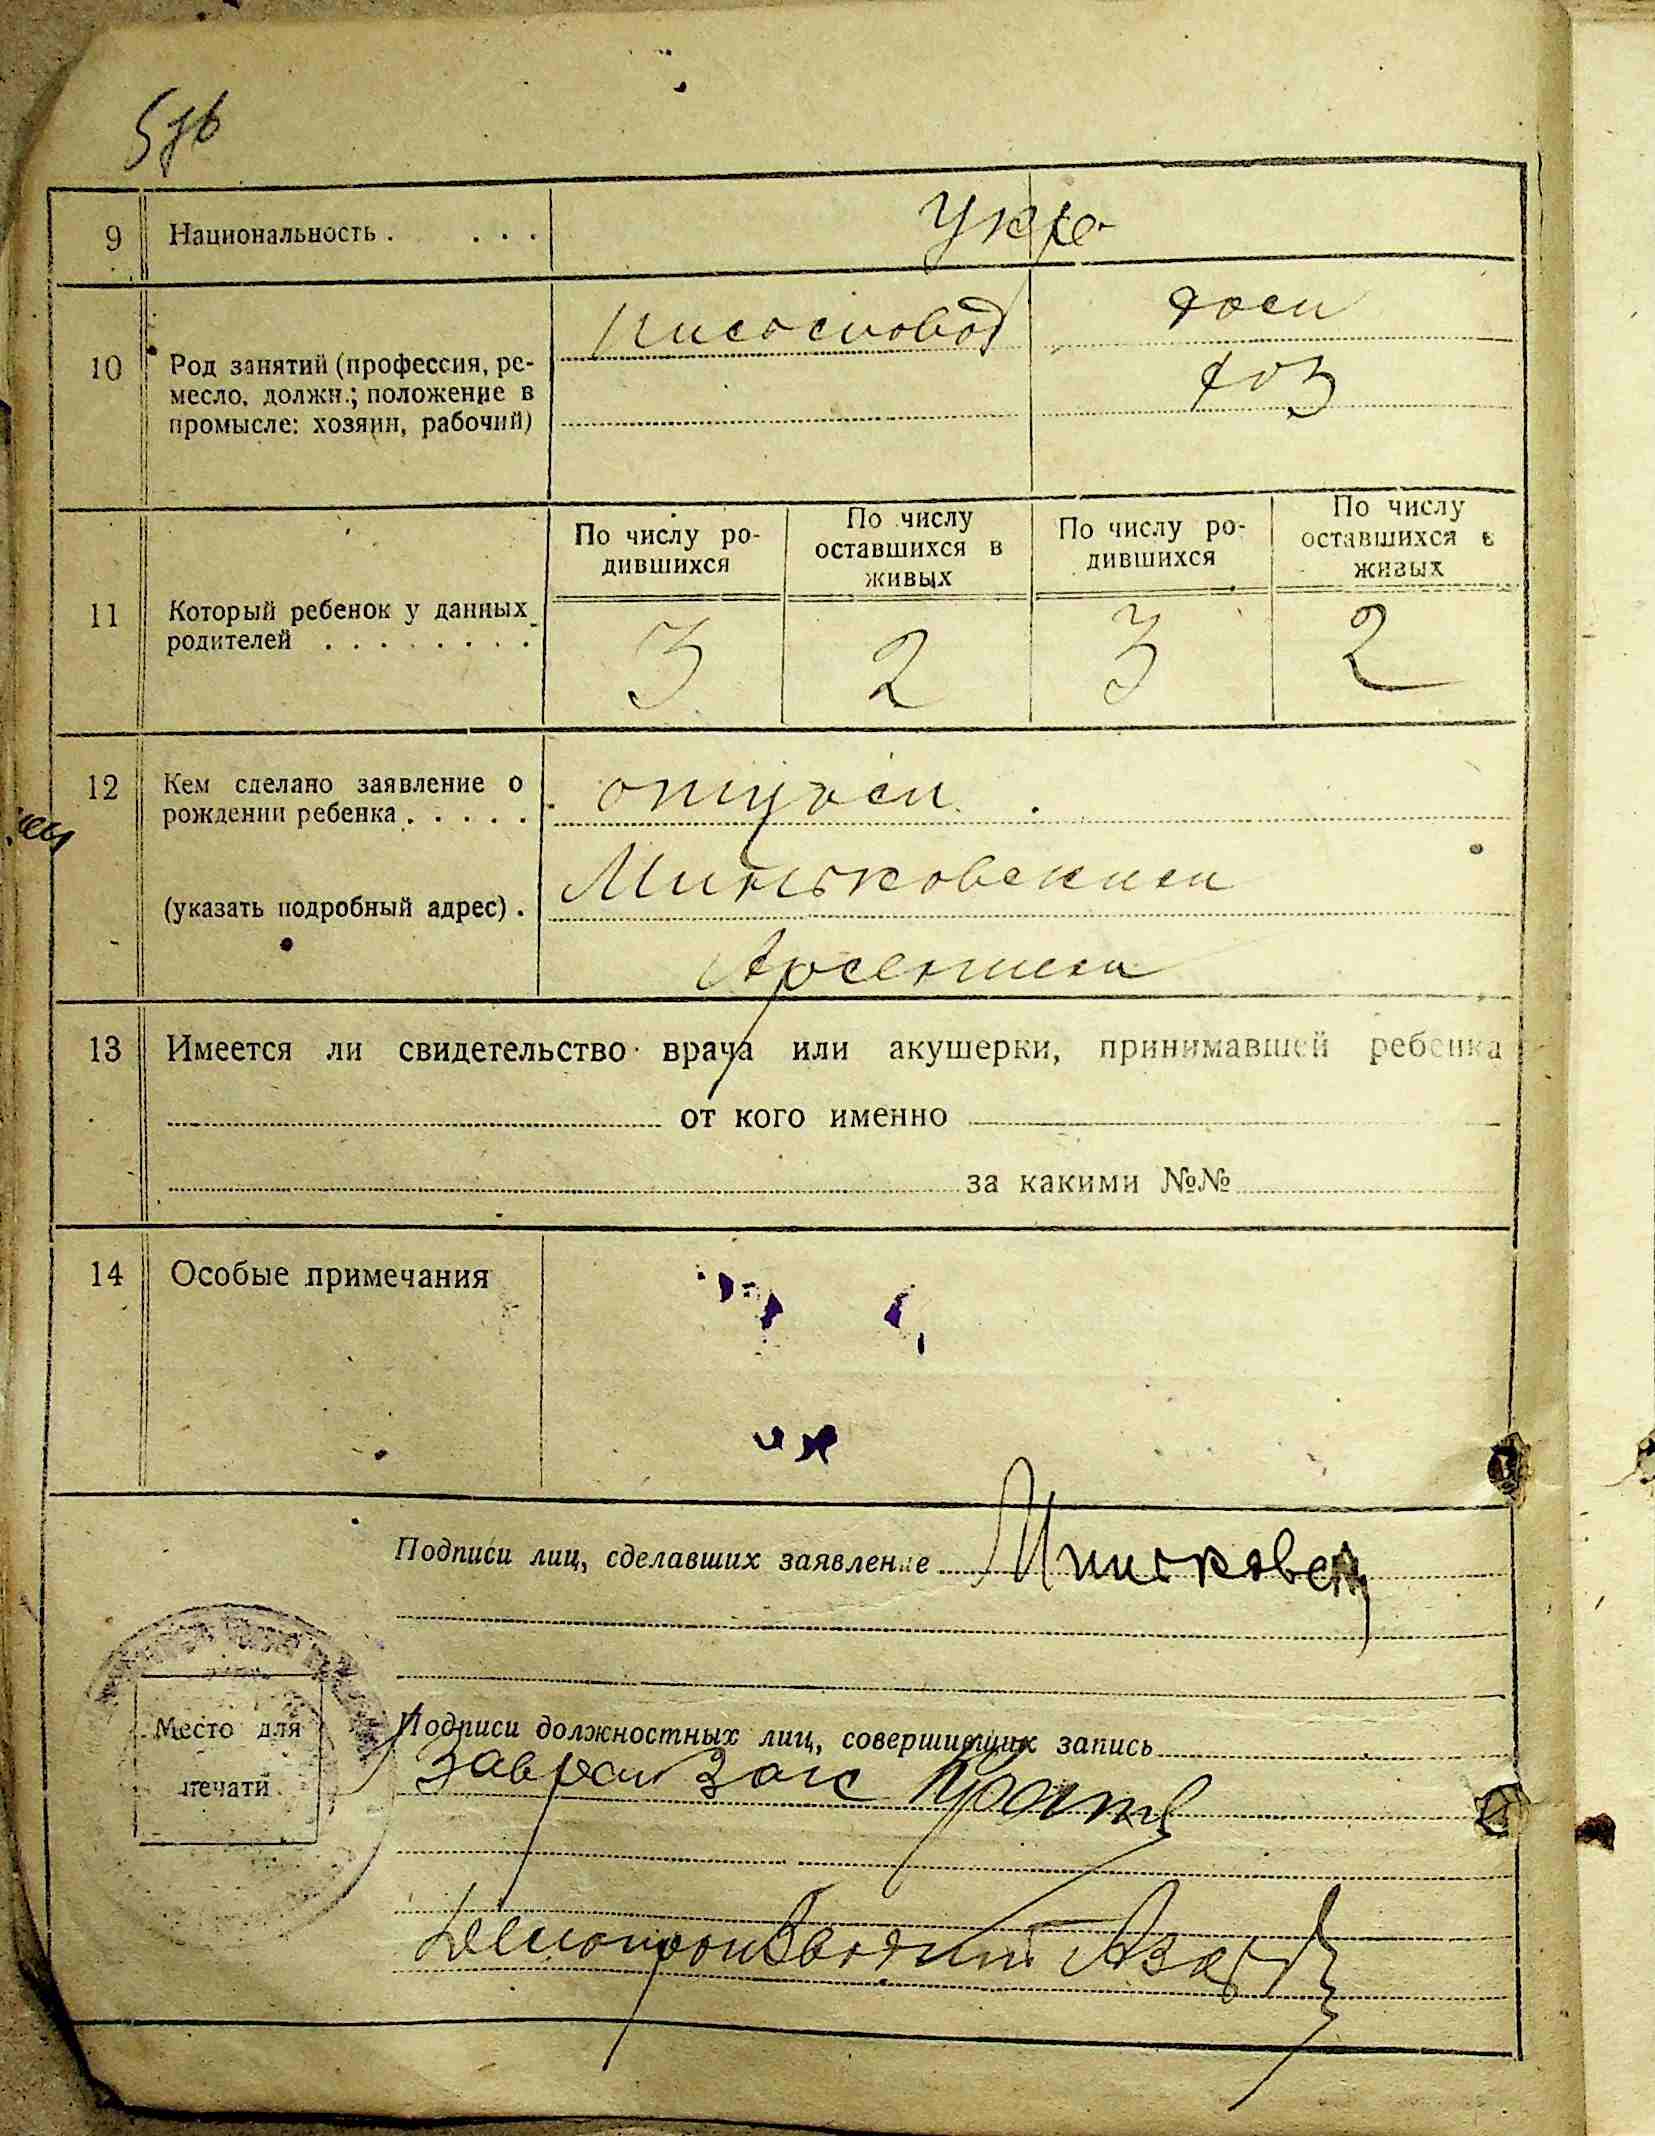 9 Национальность . . . . Укр
10 Род занятий (профессия, ре-
месло, должн.; положение в
промысле: хозяин, рабочий)
дом
хоз
По числу ро-
дившихся
По числу
оставшихся в
живых
По числу ро-
дившихся
По числу
оставшихся в
живых
11 Который ребенок у данных
родителей . . . . . . . .
3 2 3 2
12 Кем сделано заявление о
рождении ребенка . . . . .
отцом
(указать подробный адрес) .
Миньковским
Арсением
13 Имеется ли свидетельство врача или акушерки, принимавшей ребенка
от кого именно
за какими №№
14 Особые примечания
Подписи лиц, сделавших заявление
Место для
печати
Подписи должностных лиц, совершивших запись
Заврай Загс
Делопроизводит.